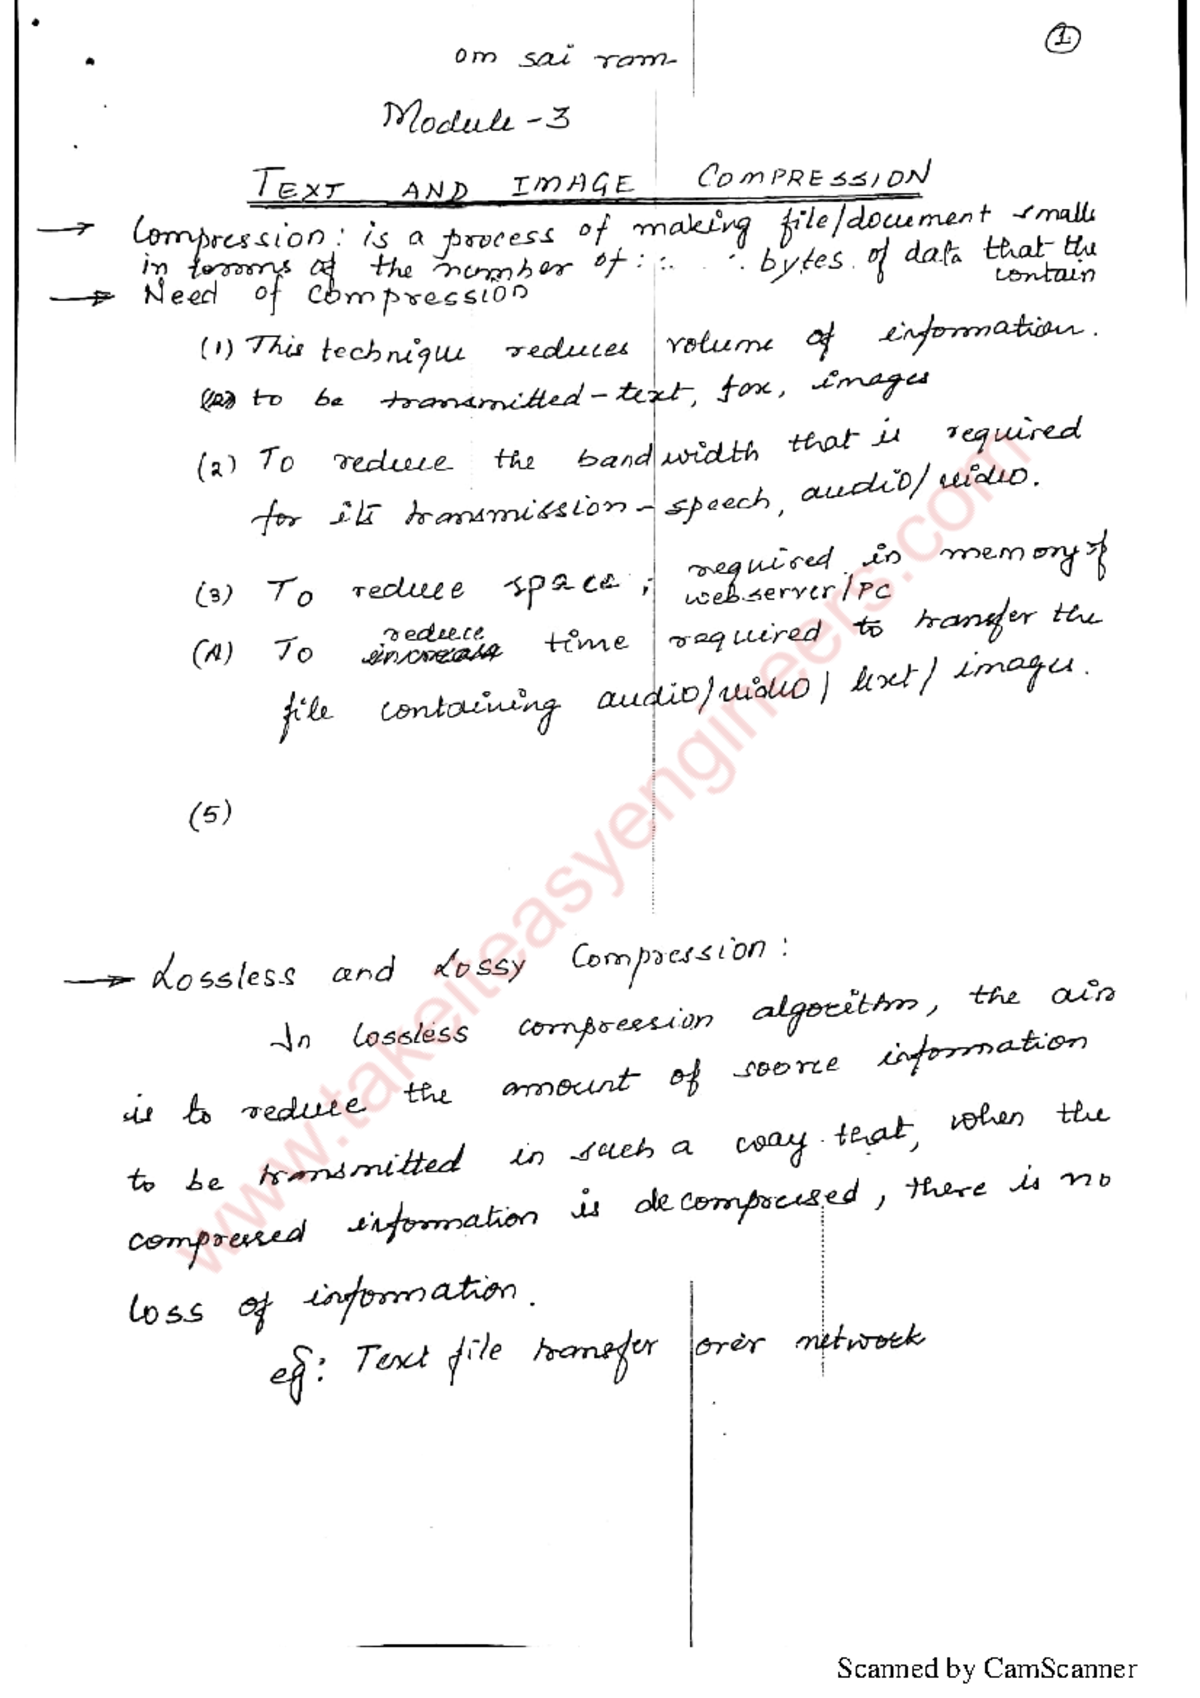 1
om sai ram
Module - 3
TEXT AND IMAGE COMPRESSION
→ Compression: is a process of making file/document smalle
in terms of the number of bytes of data that the
contain
→ Need of compression
(1) This technique reduces volume of information.
to be transmitted - text, fax, images
(2) To reduce the bandwidth that is required
for its transmission - speech, audio/video.
(3) To reduce space, required in memory of
webserver/PC
(4) To reduce time required to transfer the
file containing audio/video/text/images.
(5)
→ Lossless and Lossy Compression:
In lossless compression algorithm, the aim
is to reduce the amount of source information
to be transmitted in such a way that, when the
compressed information is decompressed, there is no
loss of information.
eg: Text file transfer over network
www.takeiteasyengineers.com
Scanned by CamScanner